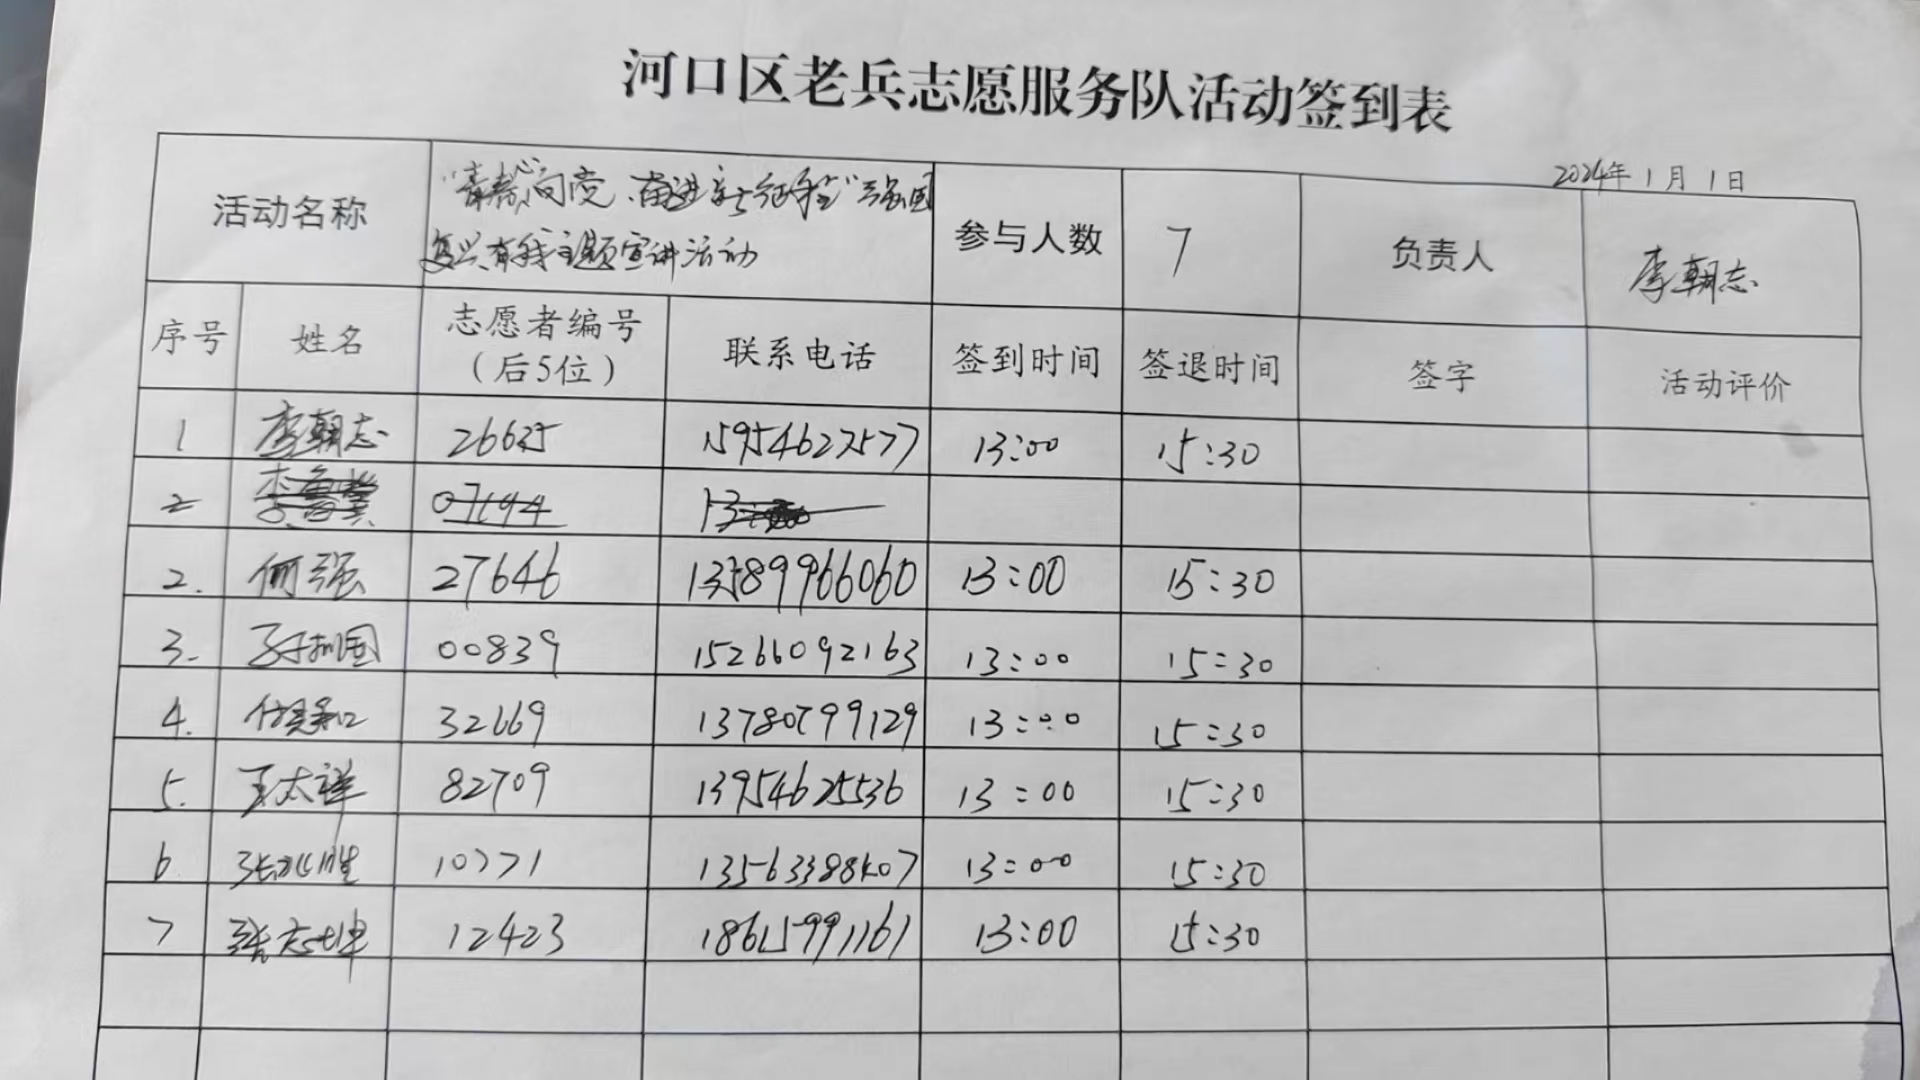 河口区老兵志愿服务队活动签到表
2024年1月1日
活动名称 "青春心向党、奋进新征程"强国 参与人数 7 负责人 李朝志
复兴有我主题宣讲活动
序号 姓名 志愿者编号 联系电话 签到时间 签退时间 签字 活动评价
（后5位）
1 李朝志 26635 15954627577 13:00 15:30
2 07194 13
2. 何强 27646 13589966060 13:00 15:30
3. 00839 15266092163 13:00 15:30
4. 32669 13780799129 13:00 15:30
5. 王太祥 82709 13954625536 13:00 15:30
6 张兆胜 10771 13:00 15:30
7 张志坤 12423 18615991161 13:00 15:30